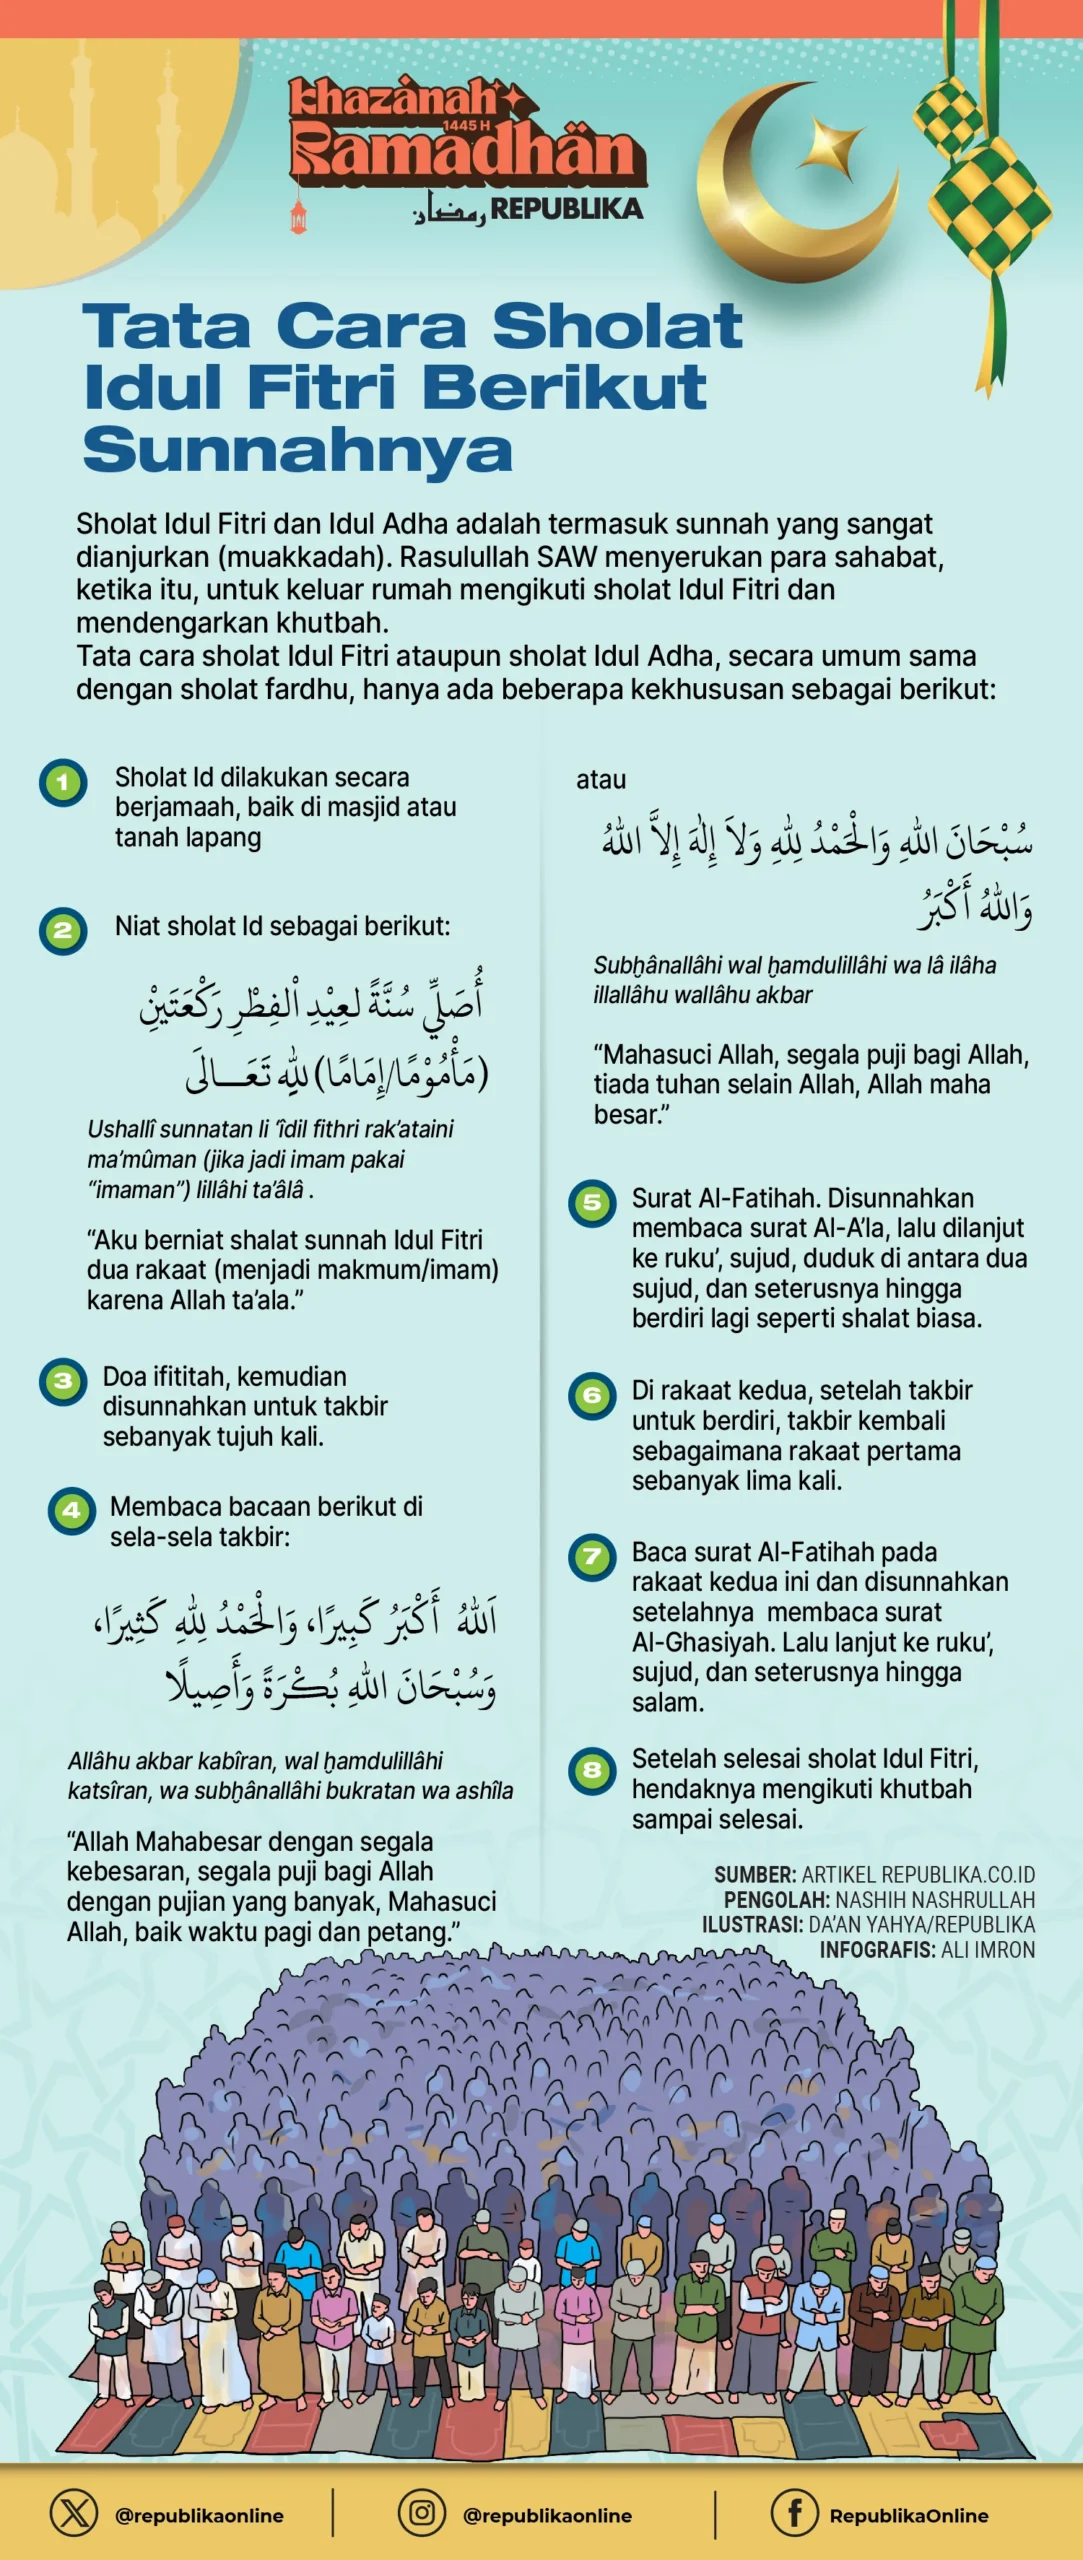 khazanah
1445 H
Ramadhan
رمضان REPUBLIKA
Tata Cara Sholat
Idul Fitri Berikut
Sunnahnya
Sholat Idul Fitri dan Idul Adha adalah termasuk sunnah yang sangat
dianjurkan (muakkadah). Rasulullah SAW menyerukan para sahabat,
ketika itu, untuk keluar rumah mengikuti sholat Idul Fitri dan
mendengarkan khutbah.
Tata cara sholat Idul Fitri ataupun sholat Idul Adha, secara umum sama
dengan sholat fardhu, hanya ada beberapa kekhususan sebagai berikut:
1 Sholat Id dilakukan secara
berjamaah, baik di masjid atau
tanah lapang
2 Niat sholat Id sebagai berikut:
أُصَلِّي سُنَّةً لعِيْدِ اْلفِطْرِ رَكْعَتَيْنِ
(مَأْمُوْمًا/إِمَامًا) لِلّٰهِ تَعَــالَى
Ushallî sunnatan li ‘îdil fithri rak’ataini
ma’mûman (jika jadi imam pakai
“imaman”) lillâhi ta’âlâ .
“Aku berniat shalat sunnah Idul Fitri
dua rakaat (menjadi makmum/imam)
karena Allah ta’ala.”
3 Doa ifititah, kemudian
disunnahkan untuk takbir
sebanyak tujuh kali.
4 Membaca bacaan berikut di
sela-sela takbir:
اَللهُ أَكْبَرُ كَبِيرًا، وَالْحَمْدُ لِلّٰهِ كَثِيرًا،
وَسُبْحَانَ اللهِ بُكْرَةً وَأَصِيلًا
Allâhu akbar kabîran, wal ḫamdulillâhi
katsîran, wa subḫânallâhi bukratan wa ashîla
“Allah Mahabesar dengan segala
kebesaran, segala puji bagi Allah
dengan pujian yang banyak, Mahasuci
Allah, baik waktu pagi dan petang.”
atau
سُبْحَانَ اللهِ وَالْحَمْدُ لِلّٰهِ وَلاَ إِلٰهَ إِلاَّ اللهُ
وَاللهُ أَكْبَرُ
Subḫânallâhi wal ḫamdulillâhi wa lâ ilâha
illallâhu wallâhu akbar
“Mahasuci Allah, segala puji bagi Allah,
tiada tuhan selain Allah, Allah maha
besar.”
5 Surat Al-Fatihah. Disunnahkan
membaca surat Al-A’la, lalu dilanjut
ke ruku’, sujud, duduk di antara dua
sujud, dan seterusnya hingga
berdiri lagi seperti shalat biasa.
6 Di rakaat kedua, setelah takbir
untuk berdiri, takbir kembali
sebagaimana rakaat pertama
sebanyak lima kali.
7 Baca surat Al-Fatihah pada
rakaat kedua ini dan disunnahkan
setelahnya membaca surat
Al-Ghasiyah. Lalu lanjut ke ruku’,
sujud, dan seterusnya hingga
salam.
8 Setelah selesai sholat Idul Fitri,
hendaknya mengikuti khutbah
sampai selesai.
SUMBER: ARTIKEL REPUBLIKA.CO.ID
PENGOLAH: NASHIH NASHRULLAH
ILUSTRASI: DA’AN YAHYA/REPUBLIKA
INFOGRAFIS: ALI IMRON
@republikaonline
@republikaonline
RepublikaOnline